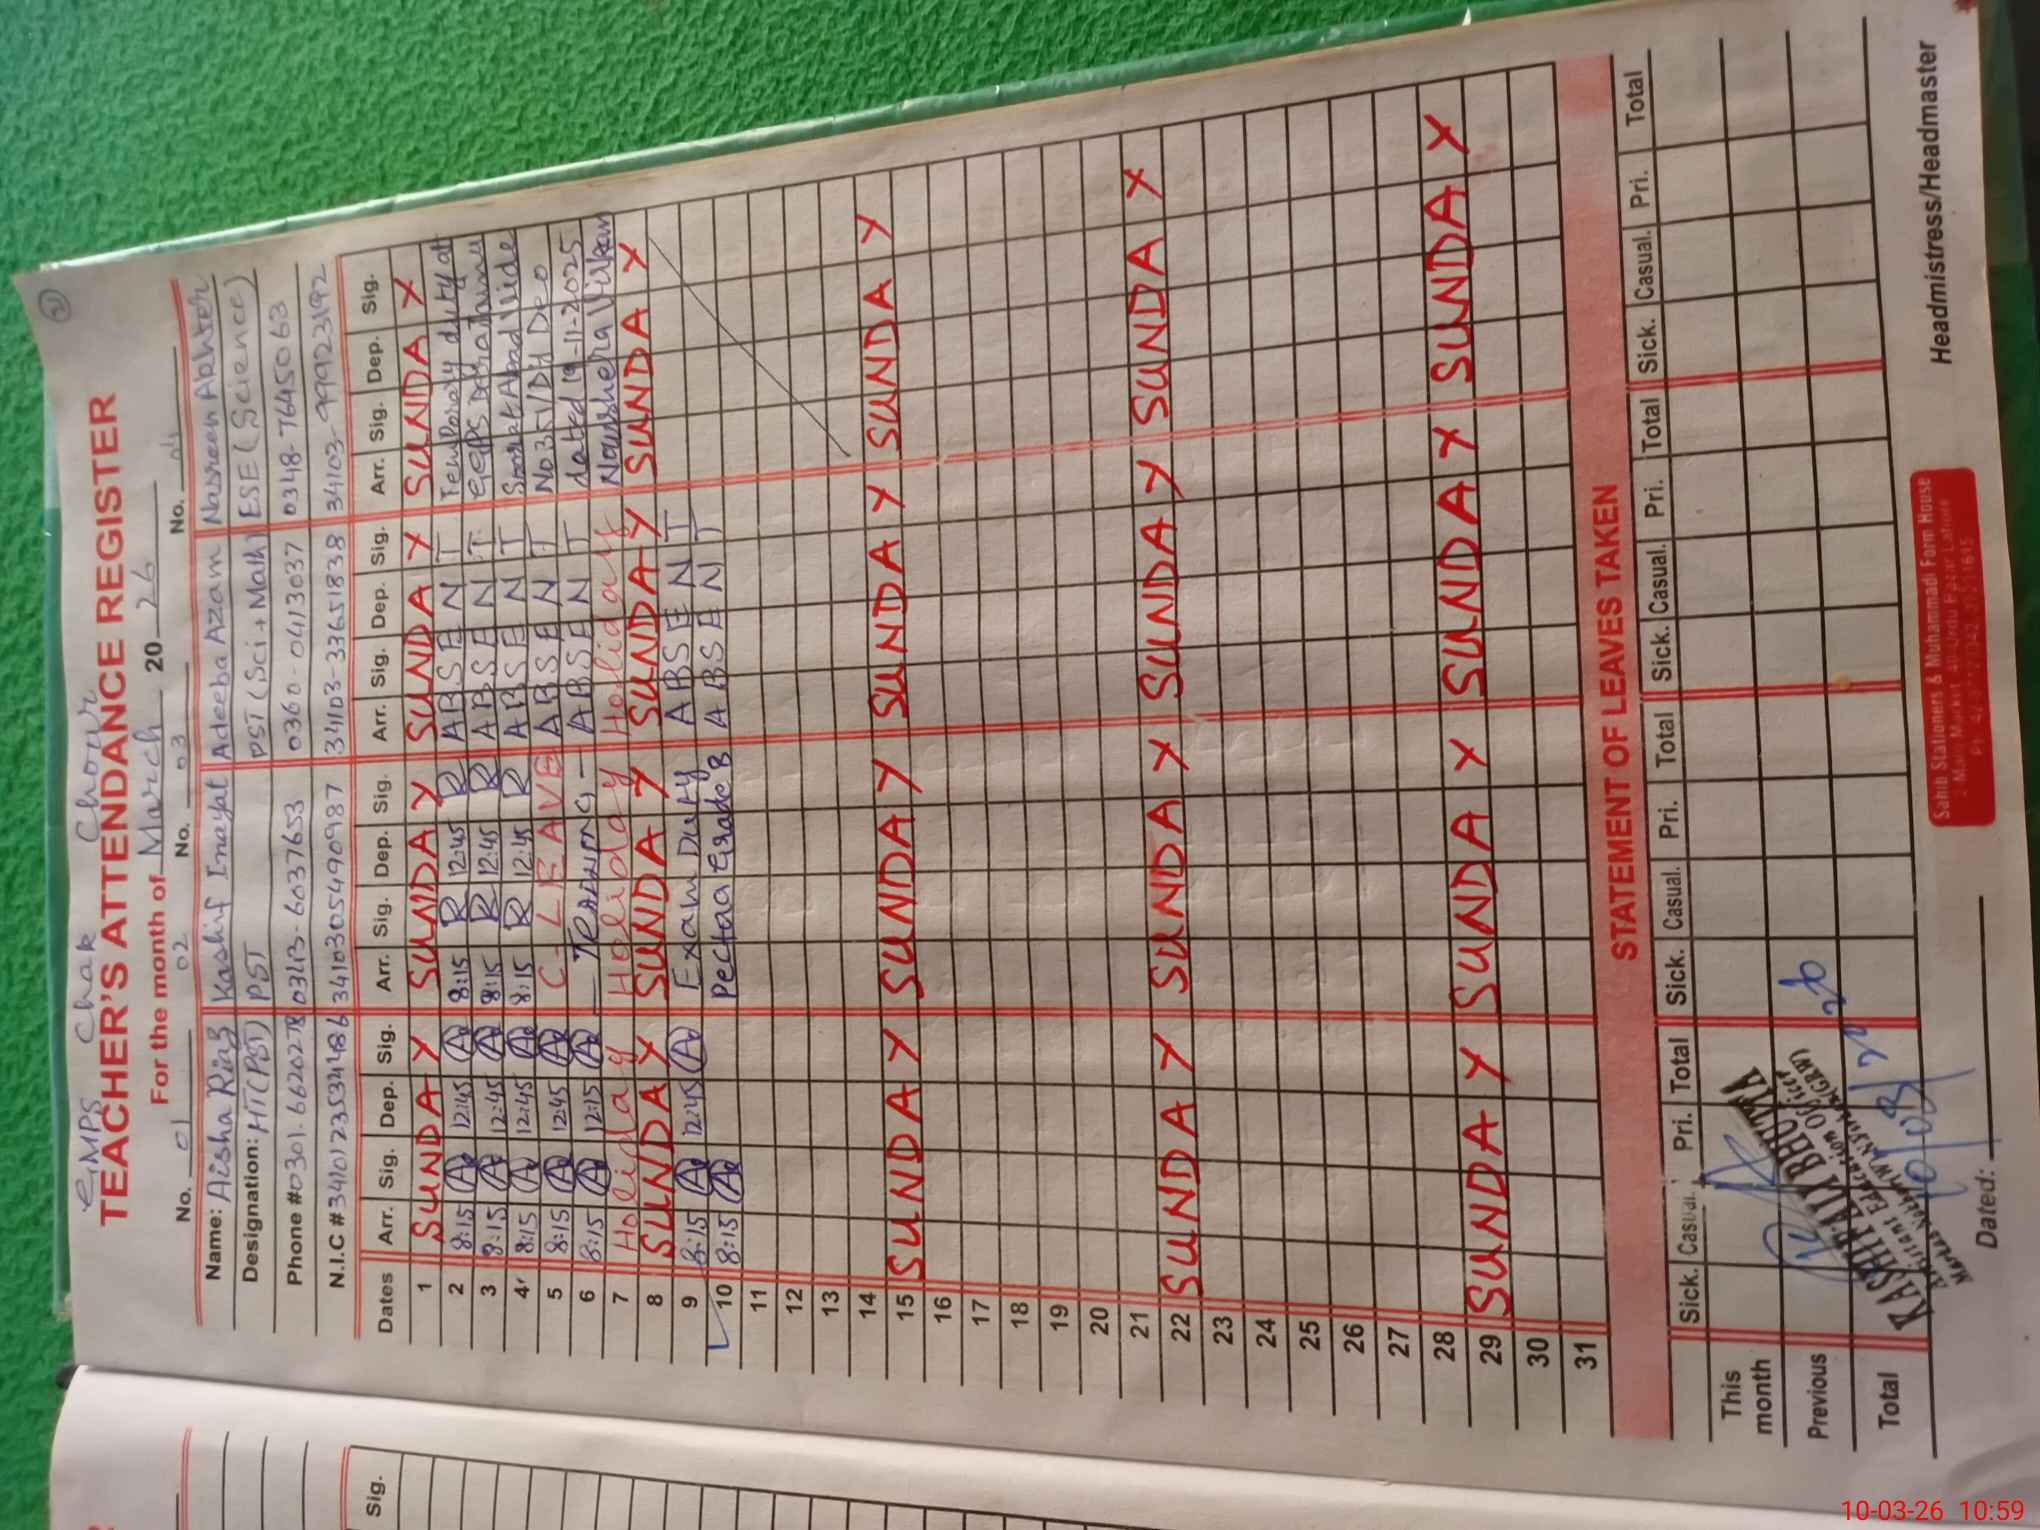 GMPS Chak Chour
TEACHER'S ATTENDANCE REGISTER
For the month of March 2026
No. 01 02 No. 03 No. 04
Name: Aisha Riaz Kashif Inayat Adeeba Azzam Nasreen Akhter
Designation: HT(PST) PST PST (Sci+Math) ESE (Science)
Phone # 0301.6620278 0343-6037653 0360-0413037 0348-7645063
N.I.C # 3410123534486 3410305490987 34103-33651838 34103-99923192
Dates Arr. Sig. Dep. Sig. Arr. Sig. Dep. Sig. Arr. Sig. Dep. Sig. Arr. Sig. Dep. Sig.
1 SUNDAY SUNDAY SUNDAY SUNDAY
2 8:15 12:45 8:15 12:45 ABSENT Temporary duty at
3 8:15 12:45 8:15 12:45 ABSENT
4 8:15 12:45 8:15 12:45 ABSENT Vide
5 8:15 12:45 C-LEAVE ABSENT No 351/Dit Deo
6 8:15 12:15 TRAINING ABSENT dated 19-11-2025
7 Holiday Holiday Holiday Noushera Virkan
8 SUNDAY SUNDAY SUNDAY SUNDAY
9 8:15 12:45 Exam Duty ABSENT
10 8:15 Pectaa Grade 8 ABSENT
11
12
13
14
15 SUNDAY SUNDAY SUNDAY SUNDAY
16
17
18
19
20
21
22 SUNDAY SUNDAY SUNDAY SUNDAY
23
24
25
26
27
28
29 SUNDAY SUNDAY SUNDAY SUNDAY
30
31
STATEMENT OF LEAVES TAKEN
Sick. Casual. Pri. Total Sick. Casual. Pri. Total Sick. Casual. Pri. Total Sick. Casual. Pri. Total
This month
Previous
Total
KASHIF ALI BHUTTA
Assistant Education Officer
10/03/2026
Dated:
Headmistress/Headmaster
Sahib Stationers & Muhammadi Form House
Sig.
10-03-26 10:59